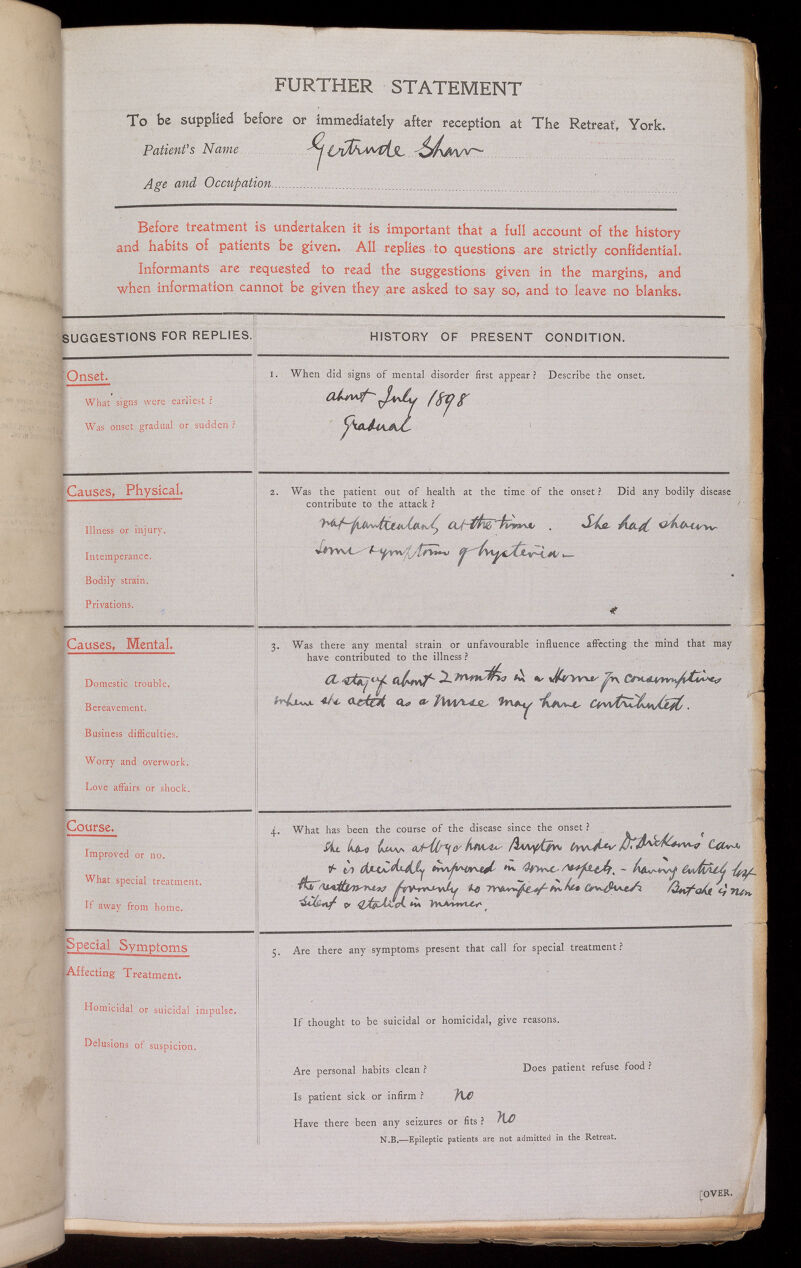 FURTHER STATEMENT
To be supplied before or immediately after reception at The Retreat, York.
Patient's Name Gertrude Shaw
Age and Occupation
Before treatment is undertaken it is important that a full account of the history
and habits of patients be given. All replies to questions are strictly confidential.
Informants are requested to read the suggestions given in the margins, and
when information cannot be given they are asked to say so, and to leave no blanks.
SUGGESTIONS FOR REPLIES.
HISTORY OF PRESENT CONDITION.
Onset.
What signs were earliest ?
Was onset gradual or sudden ?
1. When did signs of mental disorder first appear ? Describe the onset.
about July 1898
Gradual
Causes, Physical.
Illness or injury.
Intemperance.
Bodily strain.
Privations.
2. Was the patient out of health at the time of the onset ? Did any bodily disease
contribute to the attack ?
not particularly at the time . She had shown
some symptoms of hysteria –
Causes, Mental.
Domestic trouble.
Bereavement.
Business difficulties.
Worry and overwork.
Love affairs or shock.
3. Was there any mental strain or unfavourable influence affecting the mind that may
have contributed to the illness ?
A stay of about 2 months in a Home for consumptives
where she acted as a Nurse may have contributed.
Course.
Improved or no.
What special treatment.
If away from home.
4. What has been the course of the disease since the onset ?
She has been at Wye house Buxton under Dr. Dickson's care
& is decidedly improved in some respects. – having entirely lost
the restlessness formerly so manifest in her conduct But she is now
silent & stolid in manner.
Special Symptoms
Affecting Treatment.
Homicidal or suicidal impulse.
Delusions of suspicion.
5. Are there any symptoms present that call for special treatment ?
If thought to be suicidal or homicidal, give reasons.
Are personal habits clean ? Does patient refuse food ?
Is patient sick or infirm ? No
Have there been any seizures or fits ? No
N.B.—Epileptic patients are not admitted in the Retreat.
[OVER.